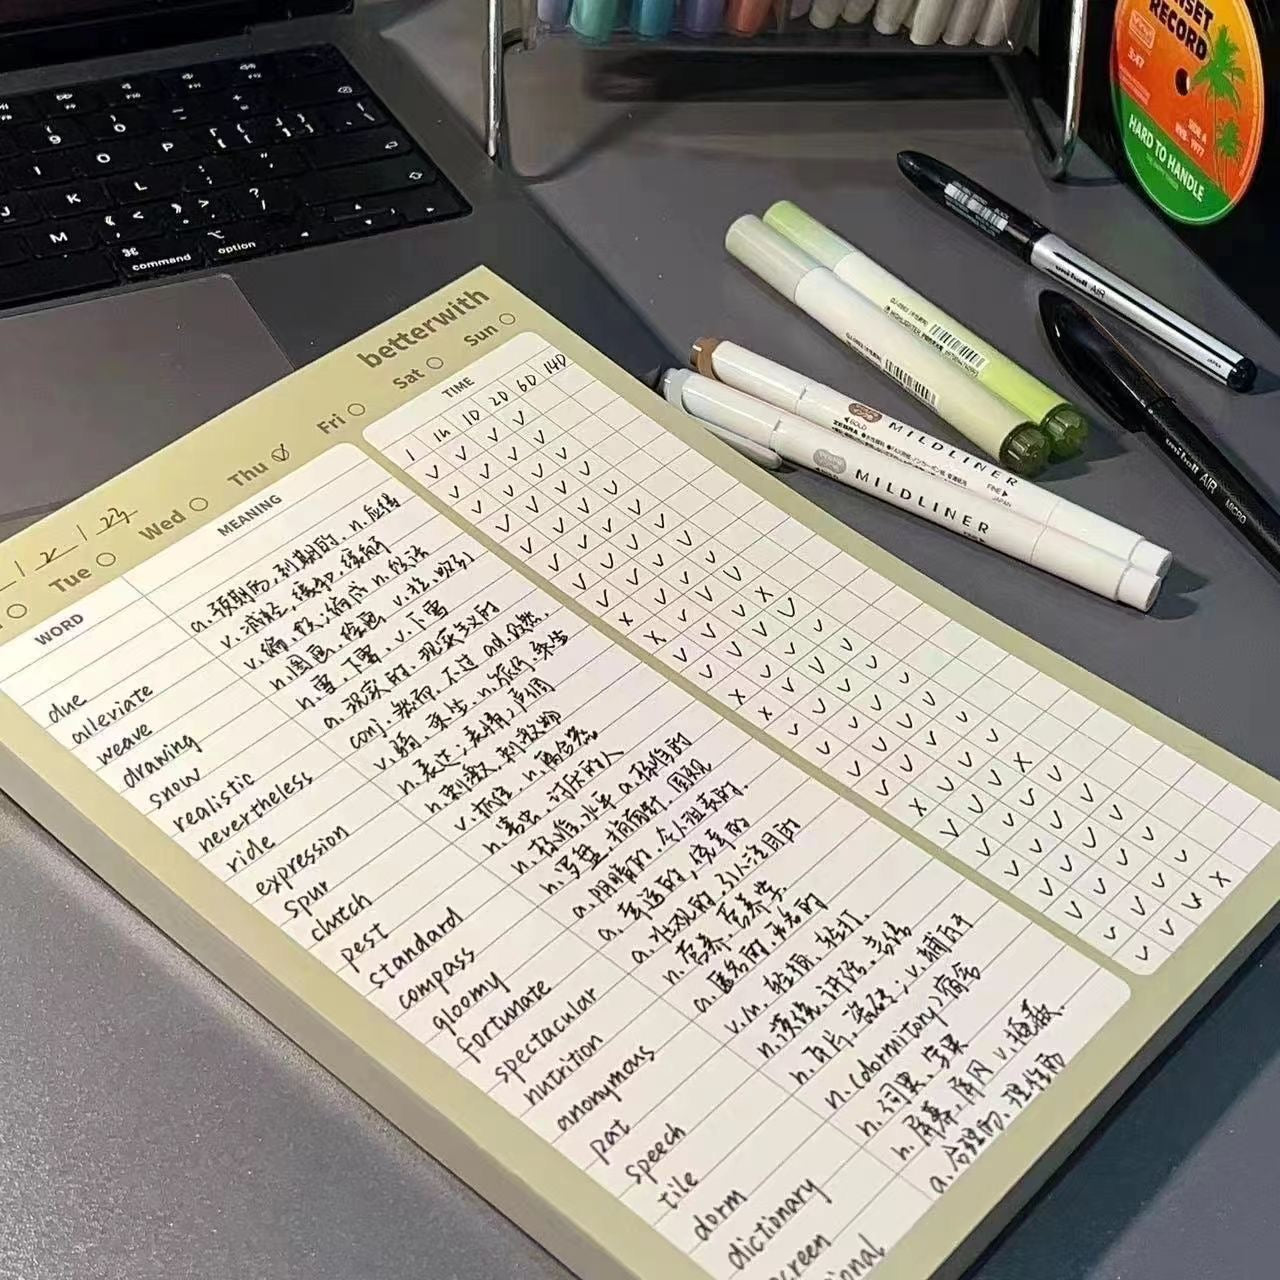 betterwith
Tue Wed Thu Fri Sat Sun
WORD MEANING TIME
1 1h 1D 2D 6D 14D
due a.预期的,到期的,n.应得
alleviate v.减轻,缓和,缓解
weave v.编,织;编成 n.织法
drawing n.图画,绘画 v.拉,吸引
snow n.雪,下雪,v.下雪
realistic a.现实的,现实主义的
nevertheless conj.然而,不过 ad.仍然
ride v.骑,乘坐 n.旅行,乘坐
expression n.表达;表情;声调
spur n.刺激,刺激物
clutch v.抓住,n.离合器
pest n.害虫,讨厌的人
standard n.标准,水平 a.标准的
compass n.罗盘,指南针,圆规
gloomy a.阴暗的,令人沮丧的
fortunate a.幸运的,侥幸的
spectacular a.壮观的,引人注目的
nutrition n.营养,营养学
anonymous a.匿名的,无名的
pat v./n.轻拍,轻打
speech n.演说,讲话,言语
tile n.瓦片,瓷砖;v.铺瓦于
dorm n.(dormitory)宿舍
dictionary n.词典,字典
creen n.屏幕,屏风 v.掩蔽
ional a.合理的,理性的
command
option
MILDLINER
ZEBRA
BOLD
FINE
JAPAN
MILDLINER
uni-ball AIR
uni-ball AIR MICRO
RECORD
3:47
SIDE A
HARD TO HANDLE